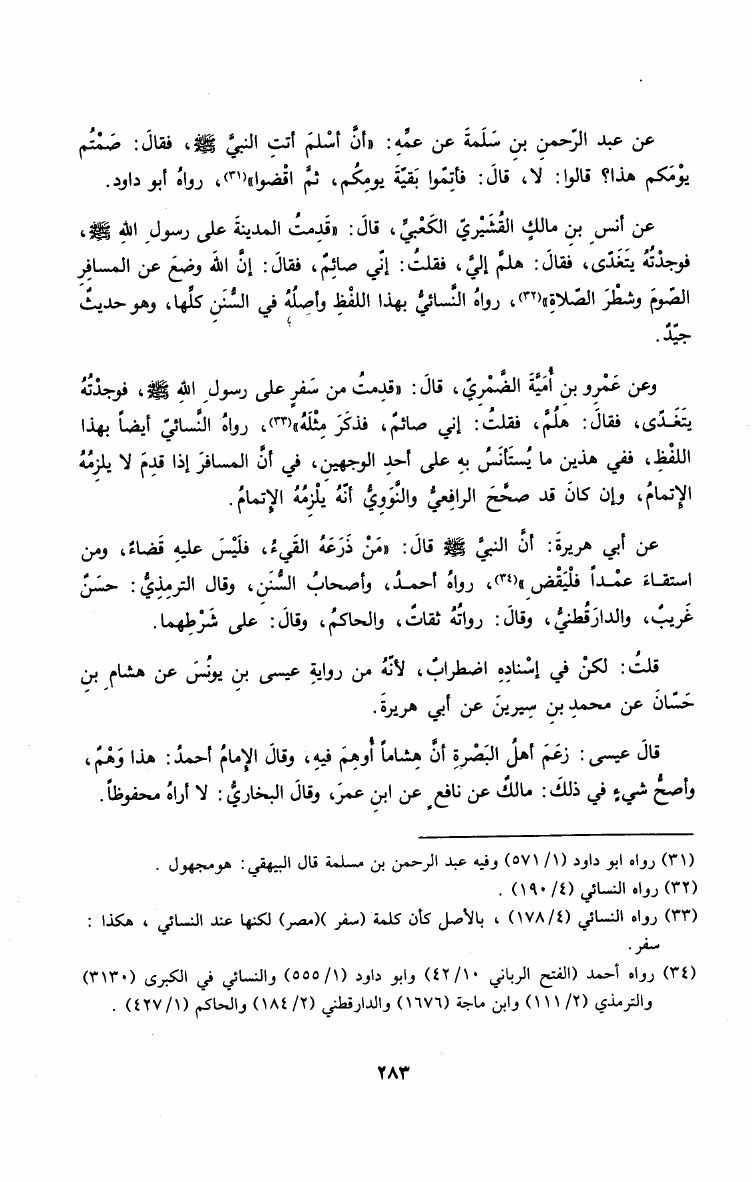 عن عبد الرّحمنِ بنِ سَلَمةَ عن عمِّهِ: «أنَّ أسْلمَ أتتِ النبيَّ ﷺ، فقالَ: صَمْتُم
يوْمَكم هذا؟ قالوا: لا، قالَ: فأتِمّوا بَقيّةَ يومِكُم، ثمَّ اقْضوا»(٣١)، رواهُ أبو داود.
عن أنسِ بنِ مالكٍ القُشَيْريّ الكَعْبيِّ، قالَ: «قَدِمتُ المدينةَ على رسولِ اللهِ ﷺ،
فوجدْتُهُ يتَغَدّى، فقالَ: هلمَّ إليَّ، فقلتُ: إنّي صائِمٌ، فقالَ: إنَّ اللهَ وضعَ عن المسافرِ
الصّومَ وشطْرَ الصّلاةِ»(٣٢)، رواهُ النَّسائيُّ بهذا اللفْظِ وأصلُهُ في السُّنَنِ كلِّها، وهو حديثٌ
جيّدٌ.
وعن عَمْرِو بنِ أُمَيَّةَ الضَّمْريّ، قالَ: «قدِمتُ من سَفرٍ على رسولِ اللهِ ﷺ، فوجدْتُهُ
يتَغَدّى، فقالَ: هلُمَّ، فقلتُ: إني صائمٌ، فذكَرَ مِثْلَهُ»(٣٣)، رواهُ النَّسائيّ أيضاً بهذا
اللفْظِ، ففي هذين ما يُستَأنَسُ بهِ على أحدِ الوجهينِ، في أنَّ المسافرَ إذا قدِمَ لا يلزمُهُ
الإتمامُ، وإن كانَ قد صحَّحَ الرافِعيُّ والنَّوَويُّ أنّهُ يلْزمُهُ الإتمامُ.
عن أبي هريرةَ: أنَّ النبيَّ ﷺ قالَ: «مَنْ ذَرَعَهُ القَيءُ، فلَيْسَ عليهِ قَضاءٌ، ومن
استقاءَ عمْداً فلْيَقْضِ»(٣٤)، رواهُ أحمدُ، وأصحابُ السُّنَنِ، وقال الترمِذِيُّ: حسَنٌ
غَريبٌ، والدارَقُطنيُّ، وقالَ: رواتُهُ ثقاتٌ، والحاكمُ، وقالَ: على شَرْطِهما.
قلتُ: لكنْ في إسْنادِهِ اضطرابٌ، لأنّهُ من روايةِ عيسى بنِ يونُسَ عن هشامِ بنِ
حَسّانَ عن محمدِ بنِ سِيرينَ عن أبي هريرةَ.
قالَ عيسى: زعَمَ أهلُ البَصْرةِ أنَّ هِشاماً أُوهِمَ فيهِ، وقالَ الإمامُ أحمدُ: هذا وَهْمٌ،
وأصحُّ شيءٍ في ذلكَ: مالكٌ عن نافعٍ عن ابنِ عمرَ، وقالَ البخاريُّ: لا أراهُ محفوظاً.
(٣١) رواه ابو داود (٥٧١/١) وفيه عبد الرحمن بن مسلمة قال البيهقي: هومجهول .
(٣٢) رواه النسائي (١٩٠/٤) .
(٣٣) رواه النسائي (١٧٨/٤) ، بالأصل كأن كلمة (سفر )(مصر) لكنها عند النسائي ، هكذا :
سفر.
(٣٤) رواه أحمد (الفتح الرباني ٤٢/١٠) وابو داود (٥٥٥/١) والنسائي في الكبرى (٣١٣٠)
والترمذي (١١١/٢) وابن ماجة (١٦٧٦) والدارقطني (١٨٤/٢) والحاكم (٤٢٧/١) .
٢٨٣